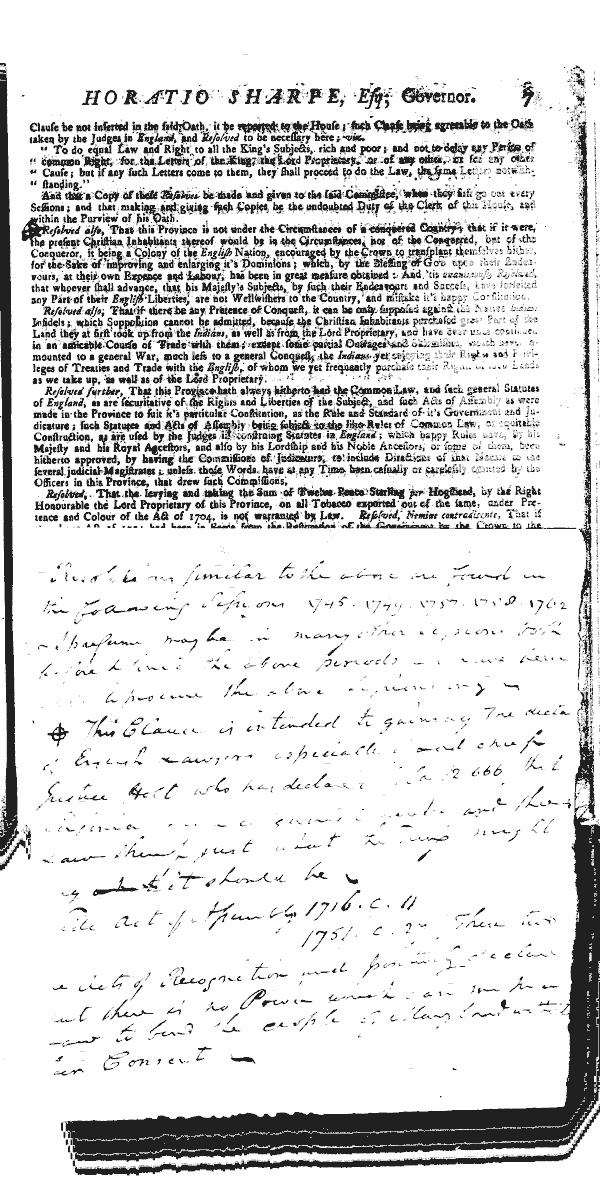 HORATIO SHARPE, Esq; Governor. 7
Clause be not inserted in the said Oath, it be reported to the House; such Clause being agreeable to the Oath
taken by the Judges in England, and Resolved to be necessary here; viz.
" To do equal Law and Right to all the King's Subjects, rich and poor; and not to delay any Person of
" common Right, for the Letters of the King, the Lord Proprietary, or of any other, or for any other
" Cause; but if any such Letters come to them, they shall proceed to do the Law, the same Letters notwith-
" standing."
And that a Copy of these Resolves be made and given to the said Committee, when they first go out every
Sessions; and that making and giving such Copies be the undoubted Duty of the Clerk of this House, and
within the Purview of his Oath.
Resolved also, That this Province is not under the Circumstances of a conquered Country; that if it were,
the present Christian Inhabitants thereof would be in the Circumstances, not of the Conquered, but of the
Conqueror, it being a Colony of the English Nation, encouraged by the Crown to transplant themselves hither,
for the Sake of improving and enlarging it's Dominions; which, by the Blessing of God upon their Endea-
vours, at their own Expence and Labour, has been in great measure obtained: And, 'tis unanimously Resolved,
that whoever shall advance, that his Majesty's Subjects, by such their Endeavours and Success, have forfeited
any Part of their English Liberties, are not Wellwishers to the Country, and mistake it's happy Constitution.
Resolved also, That if there be any Pretence of Conquest, it can be only supposed against the Native Indian
Infidels; which Supposition cannot be admitted, because the Christian Inhabitants purchased great Part of the
Land they at first took up from the Indians, as well as from the Lord Proprietary, and have ever since continued
in an amicable Course of Trade with them; except some partial Outrages and Skirmishes, which never a-
mounted to a general War, much less to a general Conquest, the Indians yet enjoying their Rights and Privi-
leges of Treaties and Trade with the English, of whom we yet frequently purchase their Rights of such Lands
as we take up, as well as of the Lord Proprietary.
Resolved further, That this Province hath always hitherto had the Common Law, and such general Statutes
of England, as are securitative of the Rights and Liberties of the Subject, and such Acts of Assembly as were
made in the Province to suit it's particular Constitution, as the Rule and Standard of it's Government and Ju-
dicature; such Statutes and Acts of Assembly being subject to the like Rules of Common Law, or equitable
Construction, as are used by the Judges in construing Statutes in England; which happy Rules have, by his
Majesty and his Royal Ancestors, and also by his Lordship and his Noble Ancestors, or some of them, been
hitherto approved, by having the Commissions of Judicature, to include Directions of that Nature to the
several judicial Magistrates; unless those Words have at any Time been casually or carelessly omitted by the
Officers in this Province, that drew such Commissions.
Resolved, That the levying and taking the Sum of Twelve Pence Sterling per Hogshead, by the Right
Honourable the Lord Proprietary of this Province, on all Tobacco exported out of the same, under Pre-
tence and Colour of the Act of 1704, is not warranted by Law. Resolved, Nemine contradicente, That if
Resolutions similar to the above are found in
the following Sessions 1745. 1749. 1757. 1758. 1762
I presume may be in many other sessions both
before & since the above periods
procure the above
This Clause is intended to gainsay The dicta
of English Lawyers especially Lord chief
Justice Holt who has declared 2 666 that
Virginia is a conquered and their
Law therefore just what the King might
say it should be
The Act of Assembly 1716. c. 11
1751. c. These two
Acts of Recognition and positively declare
that there is no Power which can make
Law to bind the people of Maryland without
their Consent